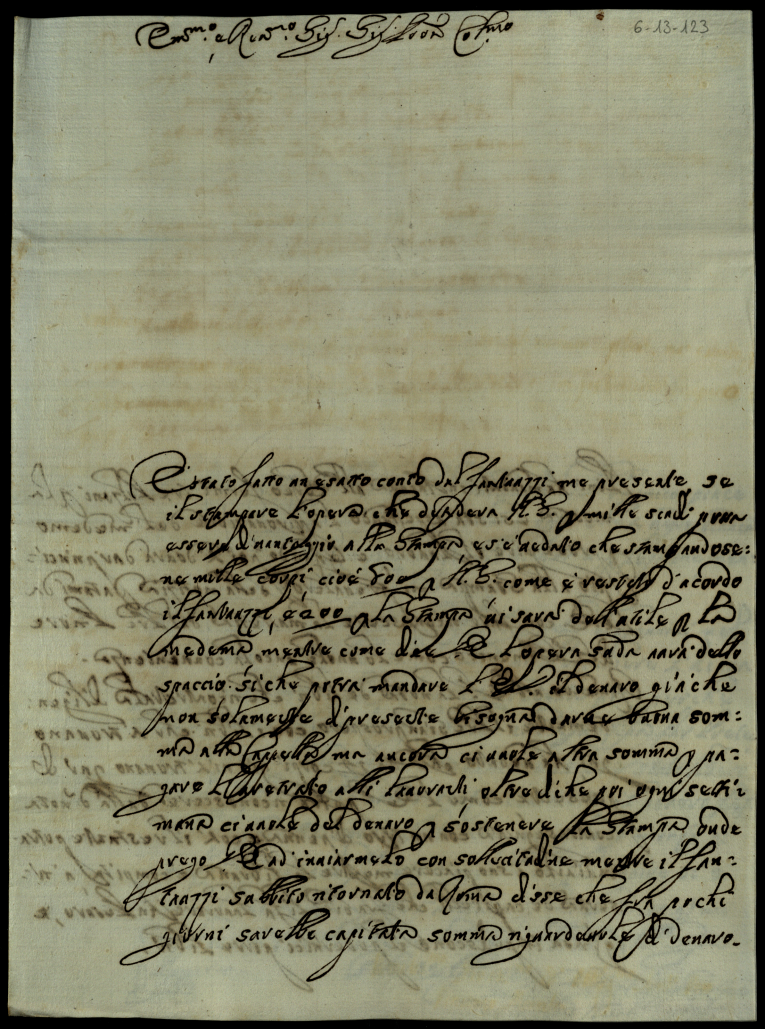 6-13-123
Em.mo e Ren.mo Sig. Sig. Pron Col.mo
È stato fatto un esatto conto dal Fantuazzi me presente se
il stampare l'opera che doveva V.E. p mille scudi
essere di vantaggio alla Stampa e s'è veduto che stampandose:
ne mille corpi cioè 800 p V.E. come è restato d'acordo
il Fantuazzi, e 200 p la Stampa vi sarà dell'utile p la
medema mentre come dice l'opera avrà dello
spaccio. Si che potrà mandare l'E.V. il denaro già che
non solamente di presente bisogna darne buona som:
ma alla ma ancora ci vuole altra somma p pa:
gare l'arretrato alli lavoranti oltre di che poi ogni setti:
mana ci vuole del denaro p sostenere la Stampa onde
prego VE ad inviarmelo con sollecitudine mentre il Fan:
tuazzi subbito ritornato da Roma disse che fra pochi
giorni sarebbe capitata somma riguardevole di denaro.